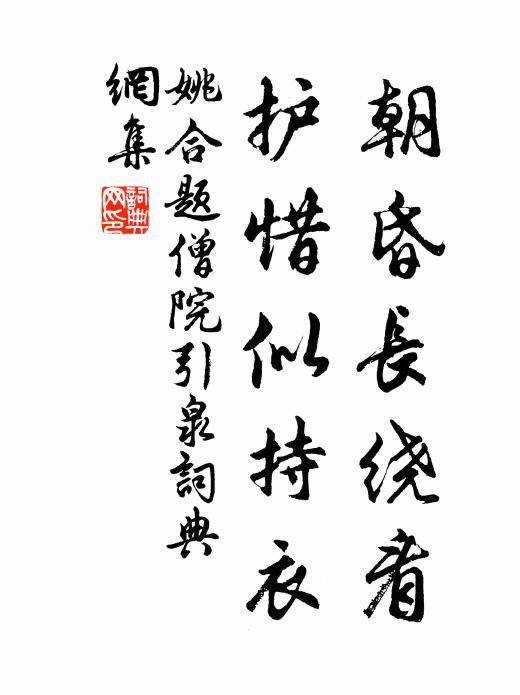 朝昏長绕看
护惜似持衣
姚合题僧院引泉詞典
網集
詞典网印